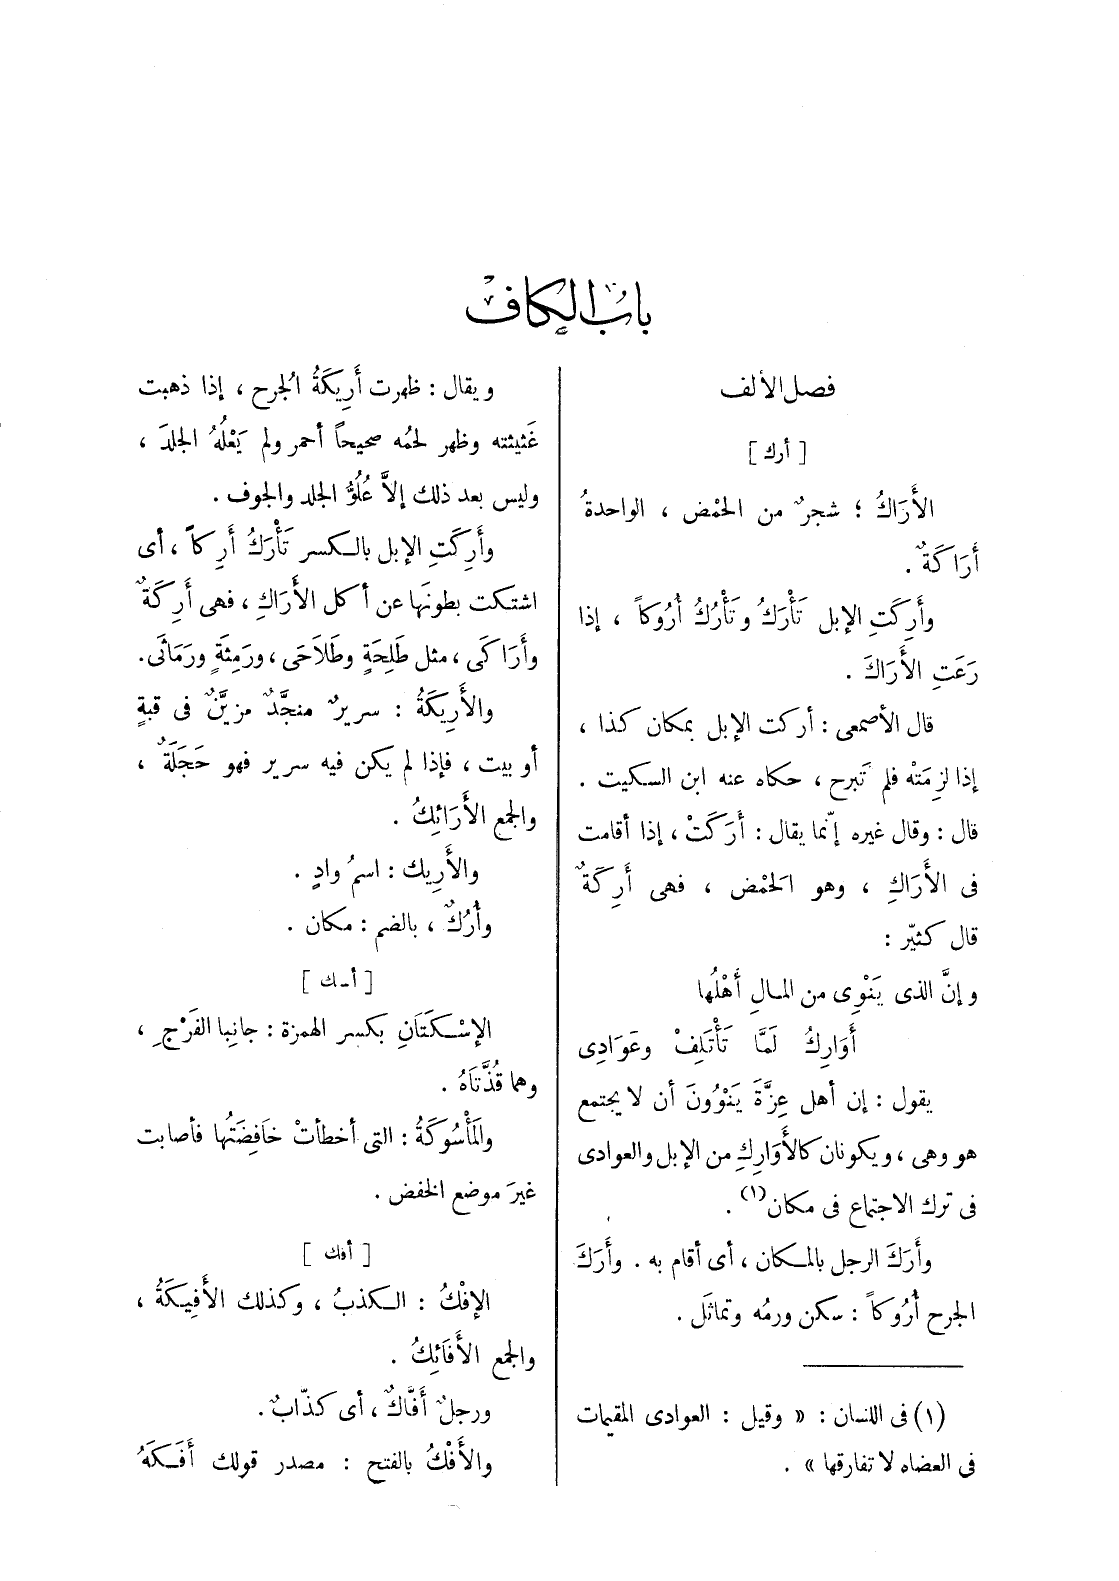 باب الكاف
فصل الألف
[ أرك ]
الأَرَاكُ ؛ شجرٌ من الحَمْض ، الواحدةُ
أَرَاكَةٌ .
وأَرِكَتِ الإبل تَأْرَكُ وتَأْرُكُ أُرُوكاً ، إذا
رَعَتِ الأَرَاكَ .
قال الأصمعى : أركت الإبل بمكان كذا ،
إذا لزِمَتْه فلم تَبرح ، حكاه عنه ابن السكيت .
قال : وقال غيره إنّما يقال : أَرَكَتْ ، إذا أقامت
فى الأَرَاكِ ، وهو الحَمْض ، فهى أَرِكَةٌ
قال كثيّر :
وإنَّ الذى يَنْوِى من المالِ أَهْلُها
أَوَارِكُ لَمَّا تَأْتَلِفْ وعَوَادِى
يقول : إن أهل عِزَّةَ يَنْوُونَ أن لا يجتمع
هو وهى ، ويكونان كالأَوَارِكِ من الإبل والعوادى
فى ترك الاجتماع فى مكان(١) .
وأَرَكَ الرجل بالمكان ، أى أقام به . وأَرَكَ
الجرح أُرُوكاً : سكن ورمُه وتماثَل .
(١) فى اللسان : « وقيل : العوادى المقيمات
فى العضاه لا تفارقها » .
ويقال : ظهرت أَرِيكَةُ الجرح ، إذا ذهبت
غَثيثته وظهر لحمُه صحيحاً أحمر ولم يَعْلُهُ الجلدَ ،
وليس بعد ذلك إلاَّ عُلُوُّ الجلد والجوف .
وأَرِكَتِ الإبل بالكسر تَأْرَكُ أَرَكاً ، أى
اشتكت بطونَها عن أكل الأَرَاكِ ، فهى أَرِكَةٌ
وأَرَاكَى ، مثل طَلِحَةٍ وطَلَاحَى ، ورَمِثَةٍ ورَمَاثَى .
والأَرِيكَةُ : سريرٌ منجَّدٌ مزيَّنٌ فى قبةٍ
أو بيت ، فإذا لم يكن فيه سرير فهو حَجَلَةٌ ،
والجمع الأَرَائِكُ .
والأَرِيك : اسمُ وادٍ .
وأُرُكٌ ، بالضم : مكان .
[ أسك ]
الإسْكَتَانِ بكسر الهمزة : جانِبا الفَرْجِ ،
وهما قُذَّتَاهُ .
والمَأْسُوكَةُ : التى أخطأتْ خَافِضَتُها فأصابت
غيرَ موضع الخفض .
[ أفك ]
الإفْكُ : الكذبُ ، وكذلك الأَفِيكَةُ ،
والجمع الأَفَائِكُ .
ورجلٌ أَفَّاكٌ ، أى كذّابٌ .
والأَفْكُ بالفتح : مصدر قولك أَفَكَهُ